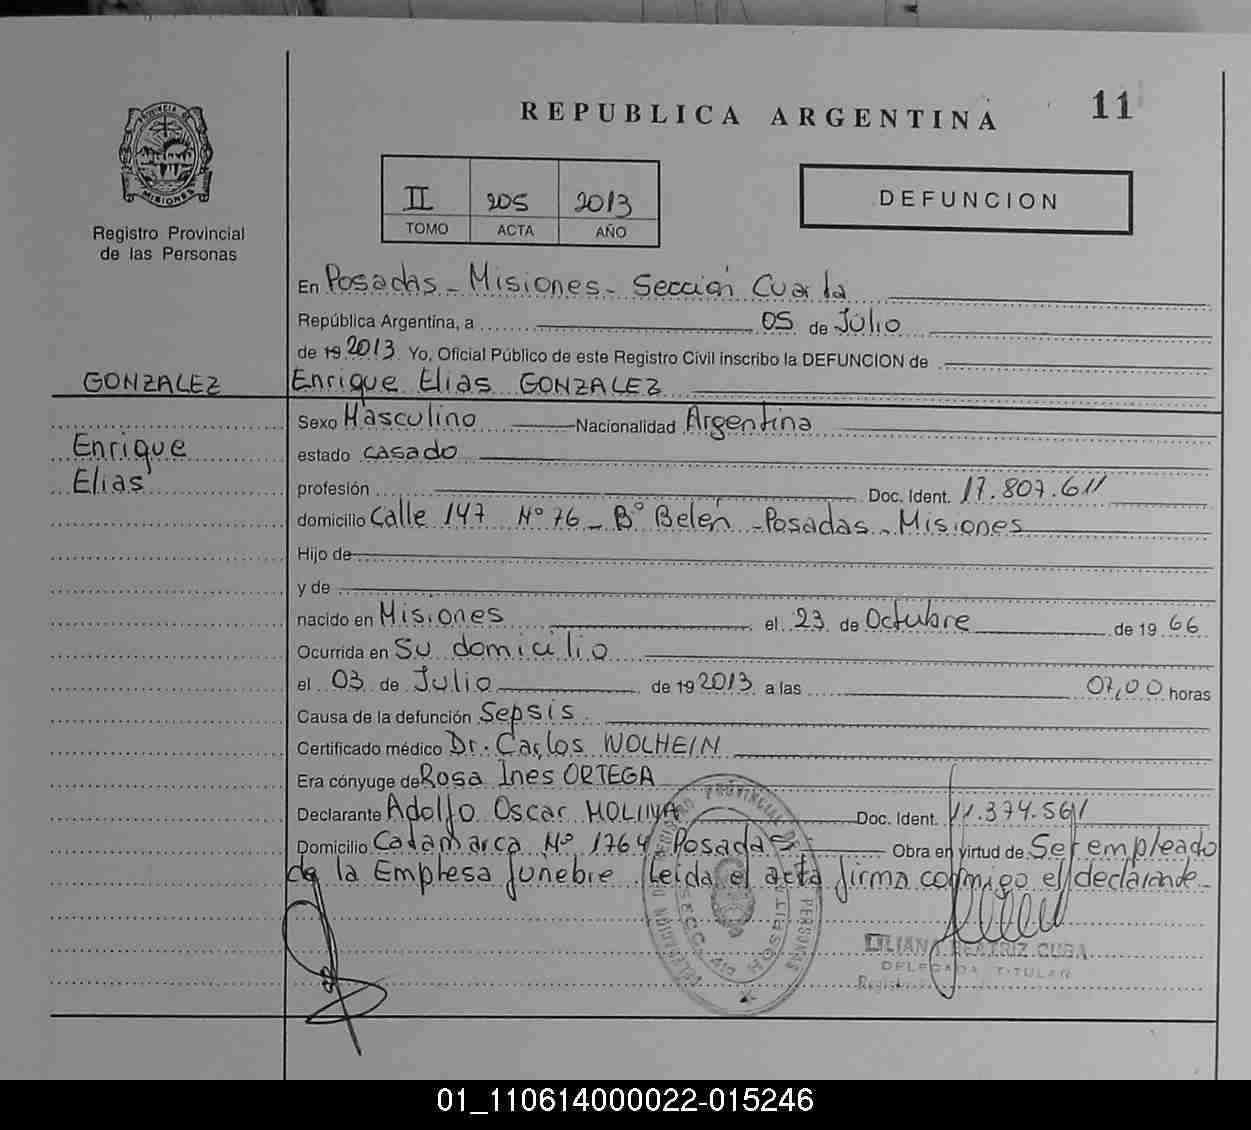 REPUBLICA ARGENTINA 11
PROVINCIA DE
MISIONES
Registro Provincial
de las Personas
II 205 2013
TOMO ACTA AÑO
DEFUNCION
En Posadas - Misiones - Sección Cuarta
República Argentina, a 05 de Julio
de 19 2013 Yo, Oficial Público de este Registro Civil inscribo la DEFUNCION de
GONZALEZ Enrique Elias GONZALEZ
Sexo Masculino Nacionalidad Argentina
Enrique
estado casado
Elias
profesión Doc. Ident. 17.807.611
domicilio Calle 147 Nº 76 - Bº Belén - Posadas - Misiones
Hijo de
y de
nacido en Misiones el 23 de Octubre de 19 66
Ocurrida en Su domicilio
el 03 de Julio de 19 2013 a las 07,00 horas
Causa de la defunción Sepsis
Certificado médico Dr. Carlos WOLHEIN
Era cónyuge de Rosa Ines ORTEGA
Declarante Adolfo Oscar MOLINA Doc. Ident. 11.374.561
Domicilio Catamarca Nº 1764 Posadas Obra en virtud de Ser empleado
de la Empresa fúnebre Leida el acta firma conmigo el declarante -
LILIANA BEATRIZ CUBA
DELEGADA TITULAR
01_110614000022-015246